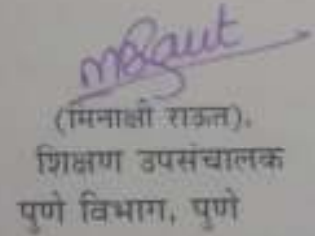 MRaut
(मिनाक्षी राऊत).
शिक्षण उपसंचालक
पुणे विभाग, पुणे